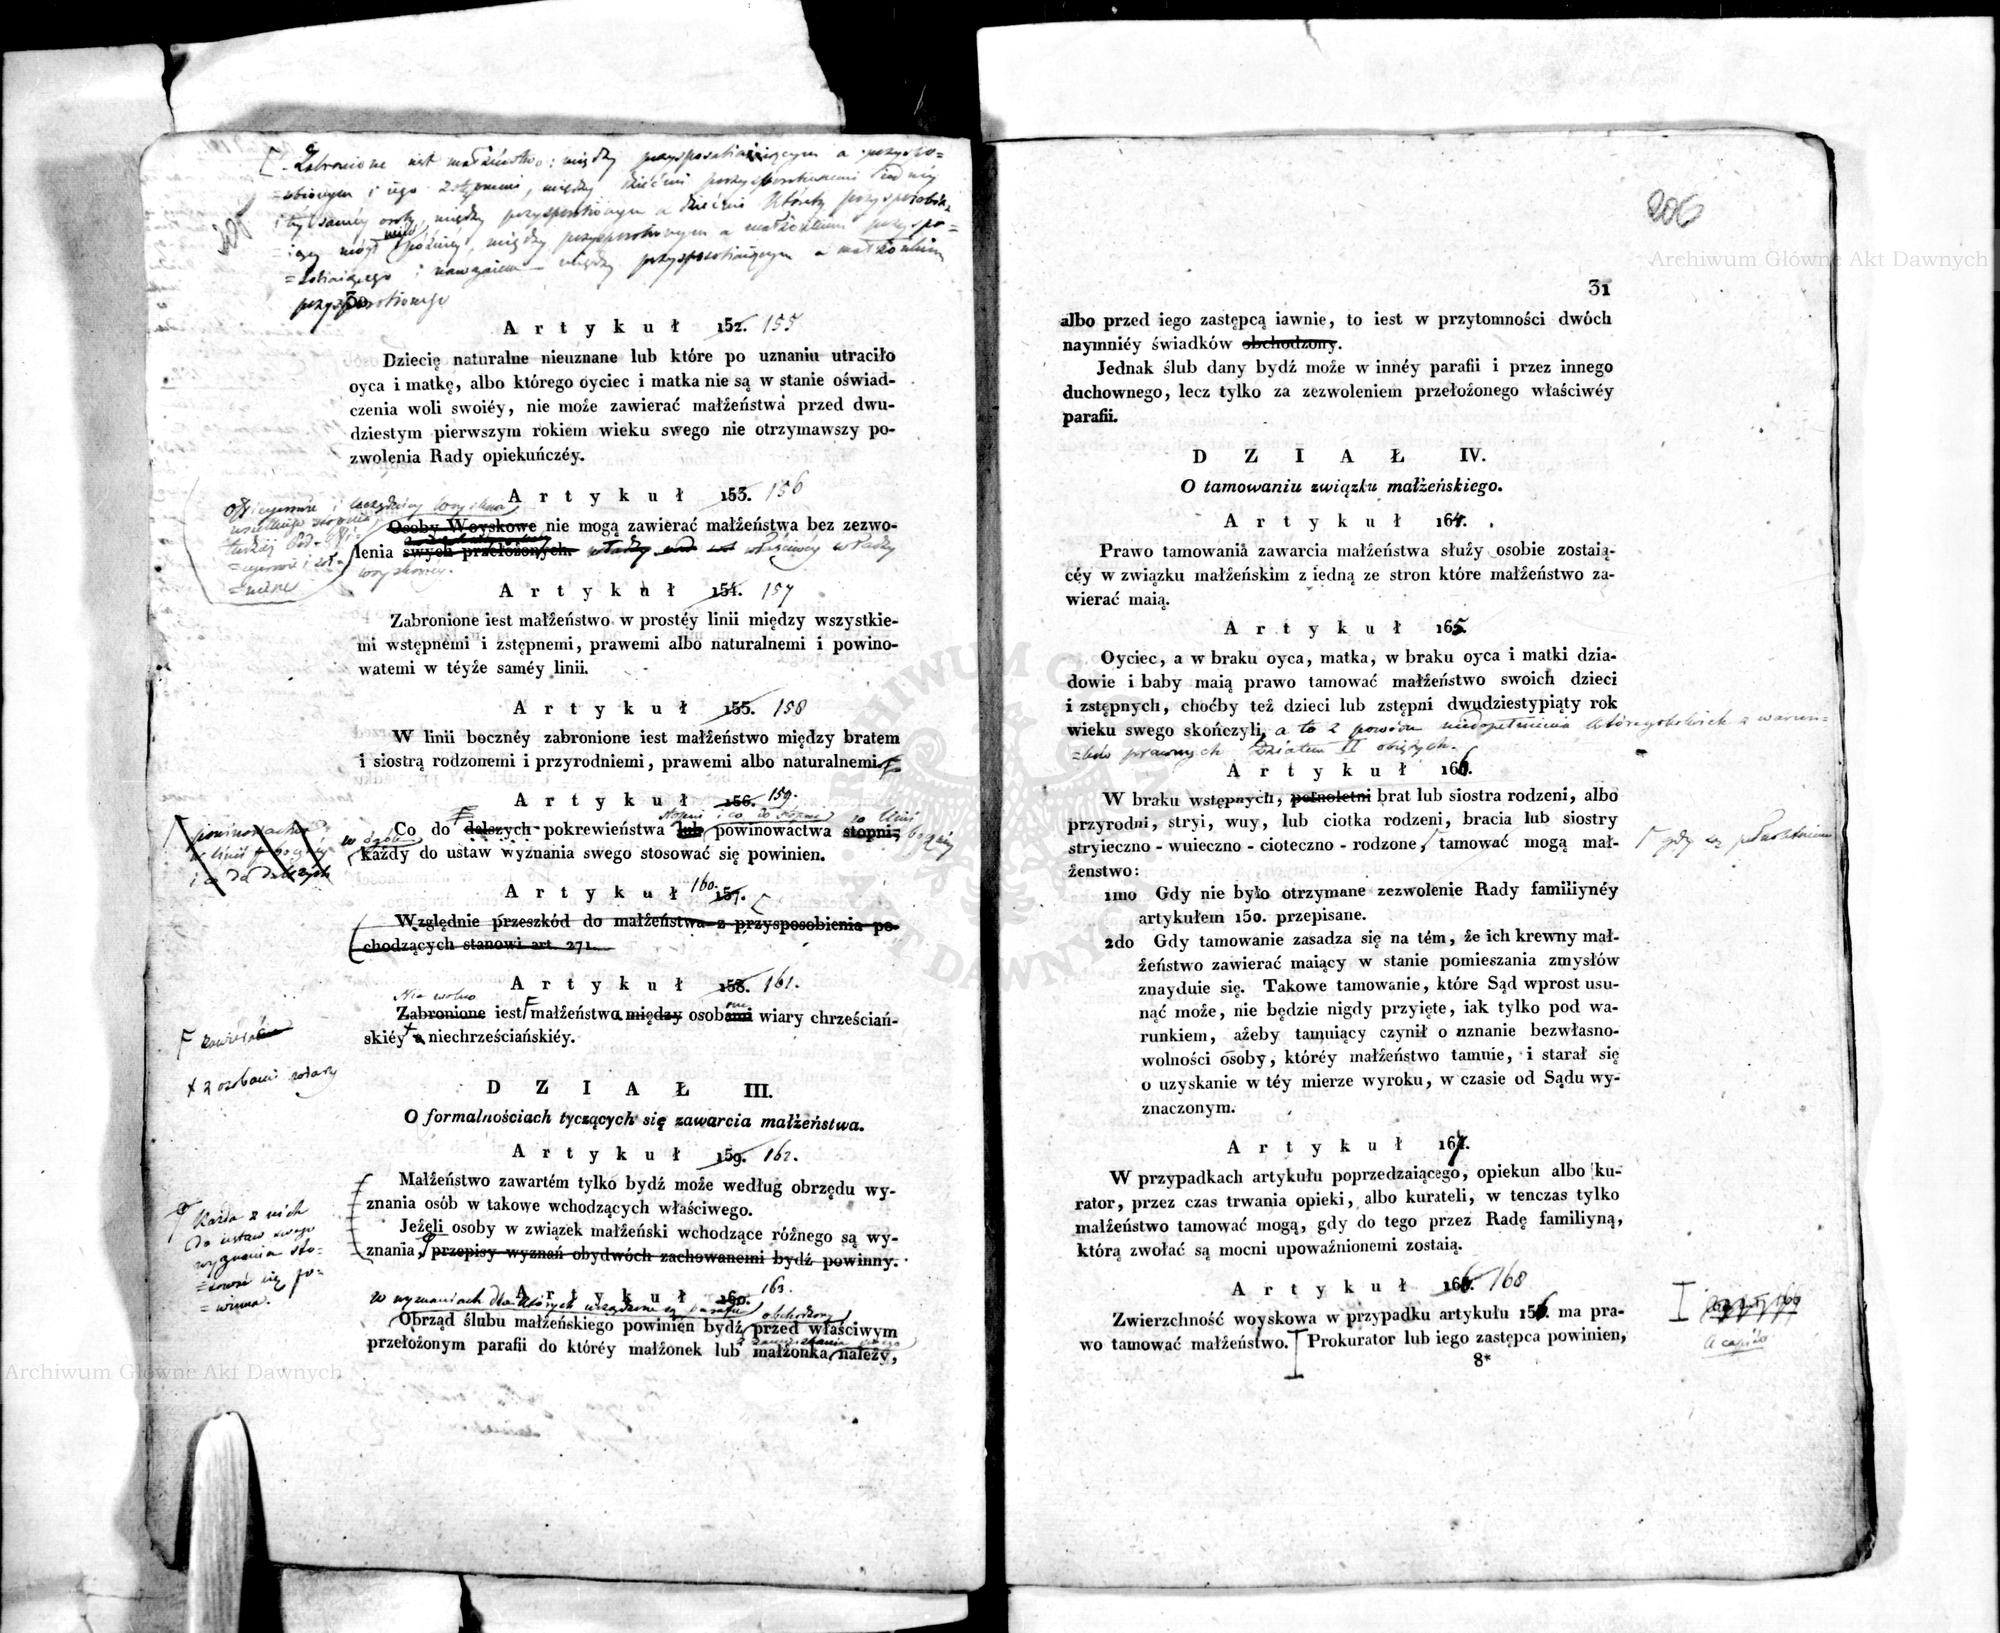 [. Zabronione iest małżeństwo: między przysposabiaiącym a przyspo=
=sobionym i iego zstępnemi, między dziećmi przysposobionemi iedney
i téy saméy osoby, między przysposobionym a dziećmi któreby przysposobia=
=iący mógł mieć późniéy, między przysposobionym a małżonkiem przyspo=
=sabiaiącego i nawzaiem między przysposabiaiącym a małżonkiem
przysposobionego
30
Artykuł 152. 155
Dziecię naturalne nieuznane lub które po uznaniu utraciło
oyca i matkę, albo którego oyciec i matka nie są w stanie oświad-
czenia woli swoiéy, nie może zawierać małżeństwa przed dwu-
dziestym pierwszym rokiem wieku swego nie otrzymawszy po-
zwolenia Rady opiekuńczéy.
Artykuł 153. 156
Officyerowie i urzędnicy woyskowi
wszelkiego stopnia
tudzież Pod-Offi-
=cyerowie i żoł-
=nierze
Osoby Woyskowe nie mogą zawierać małżeństwa bez zezwo-
lenia swych przełożonych. właściwéy władzy
woyskowey.
Artykuł 154. 157
Zabronione iest małżeństwo w prostéy linii między wszystkie-
mi wstępnemi i zstępnemi, prawemi albo naturalnemi i powino-
watemi w téyże saméy linii.
Artykuł 155. 158
W linii bocznéy zabronione iest małżeństwo między bratem
i siostrą rodzonemi i przyrodniemi, prawemi albo naturalnemi.
Artykuł 156. 159.
stopni i co do stopni w linii
Co do dalszych pokrewieństwa lub powinowactwa stopni, bocznéy
w linii bocznéy
i co do dalszych
każdy do ustaw wyznania swego stosować się powinien.
Artykuł 157. 160.
Względnie przeszkód do małżeństwa z przysposobienia po-
chodzących stanowi art. 271.
Artykuł 158. 161.
Nie wolno
Zabronione iest małżeństwo między osobami wiary chrześciań-
skiéy a niechrześciańskiéy.
zawierać
+ z osobami wiary
DZIAŁ III.
O formalnościach tyczących się zawarcia małżeństwa.
Artykuł 159. 162.
Małżeństwo zawartém tylko bydź może według obrzędu wy-
znania osób w takowe wchodzących właściwego.
Jeżeli osoby w związek małżeński wchodzące różnego są wy-
znania, przepisy wyznań obydwóch zachowanemi bydź powinny.
każda z nich
do ustaw swego
wyznania sto-
=sować się po-
=winna.
Artykuł 160. 163.
w wyznaniach dla których urządzone są parafie obchodzony
Obrząd ślubu małżeńskiego powinien bydź przed właściwym
przełożonym parafii do któréy małżonek lub małżonka należy,
206
31
albo przed iego zastępcą iawnie, to iest w przytomności dwóch
naymniéy świadków obchodzony.
Jednak ślub dany bydź może w innéy parafii i przez innego
duchownego, lecz tylko za zezwoleniem przełożonego właściwéy
parafii.
DZIAŁ IV.
O tamowaniu związku małżeńskiego.
Artykuł 164.
Prawo tamowania zawarcia małżeństwa służy osobie zostaią-
céy w związku małżeńskim z iedną ze stron które małżeństwo za-
wierać maią.
Artykuł 165.
Oyciec, a w braku oyca, matka, w braku oyca i matki dzia-
dowie i baby maią prawo tamować małżeństwo swoich dzieci
i zstępnych, choćby też dzieci lub zstępni dwudziestypiąty rok
wieku swego skończyli, a to z powodu niedopełnienia któregokolwiek z warun=
=ków prawnych Działem II obiętych.
Artykuł 166.
W braku wstępnych, pełnoletni brat lub siostra rodzeni, albo
przyrodni, stryi, wuy, lub ciotka rodzeni, bracia lub siostry
stryieczno - wuieczno - cioteczno - rodzone, tamować mogą mał- gdy są pełnoletniemi
żenstwo:
1mo Gdy nie było otrzymane zezwolenie Rady familiynéy
artykułem 150. przepisane.
2do Gdy tamowanie zasadza się na tém, że ich krewny mał-
żeństwo zawierać maiący w stanie pomieszania zmysłów
znayduie się. Takowe tamowanie, które Sąd wprost usu-
nąć może, nie będzie nigdy przyięte, iak tylko pod wa-
runkiem, ażeby tamuiący czynił o uznanie bezwłasno-
wolności osoby, któréy małżeństwo tamuie, i starał się
o uzyskanie w téy mierze wyroku, w czasie od Sądu wy-
znaczonym.
Artykuł 167.
W przypadkach artykułu poprzedzaiącego, opiekun albo ku-
rator, przez czas trwania opieki, albo kurateli, w tenczas tylko
małżeństwo tamować mogą, gdy do tego przez Radę familiyną,
którą zwołać są mocni upoważnionemi zostaią.
Artykuł 168
Zwierzchność woyskowa w przypadku artykułu 156. ma pra-
wo tamować małżeństwo. Prokurator lub iego zastępca powinien,
a capito
8*
Archiwum Główne Akt Dawnych
Archiwum Główne Akt Dawnych